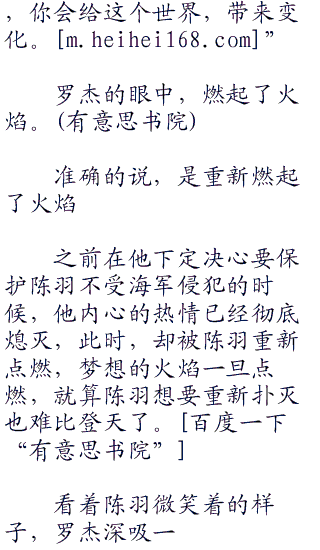 ，你会给这个世界，带来变
化。[m.heihei168.com]”
罗杰的眼中，燃起了火
焰。(有意思书院)
准确的说，是重新燃起
了火焰
之前在他下定决心要保
护陈羽不受海军侵犯的时
候，他内心的热情已经彻底
熄灭，此时，却被陈羽重新
点燃，梦想的火焰一旦点
燃，就算陈羽想要重新扑灭
也难比登天了。[百度一下
“有意思书院”]
看着陈羽微笑着的样
子，罗杰深吸一